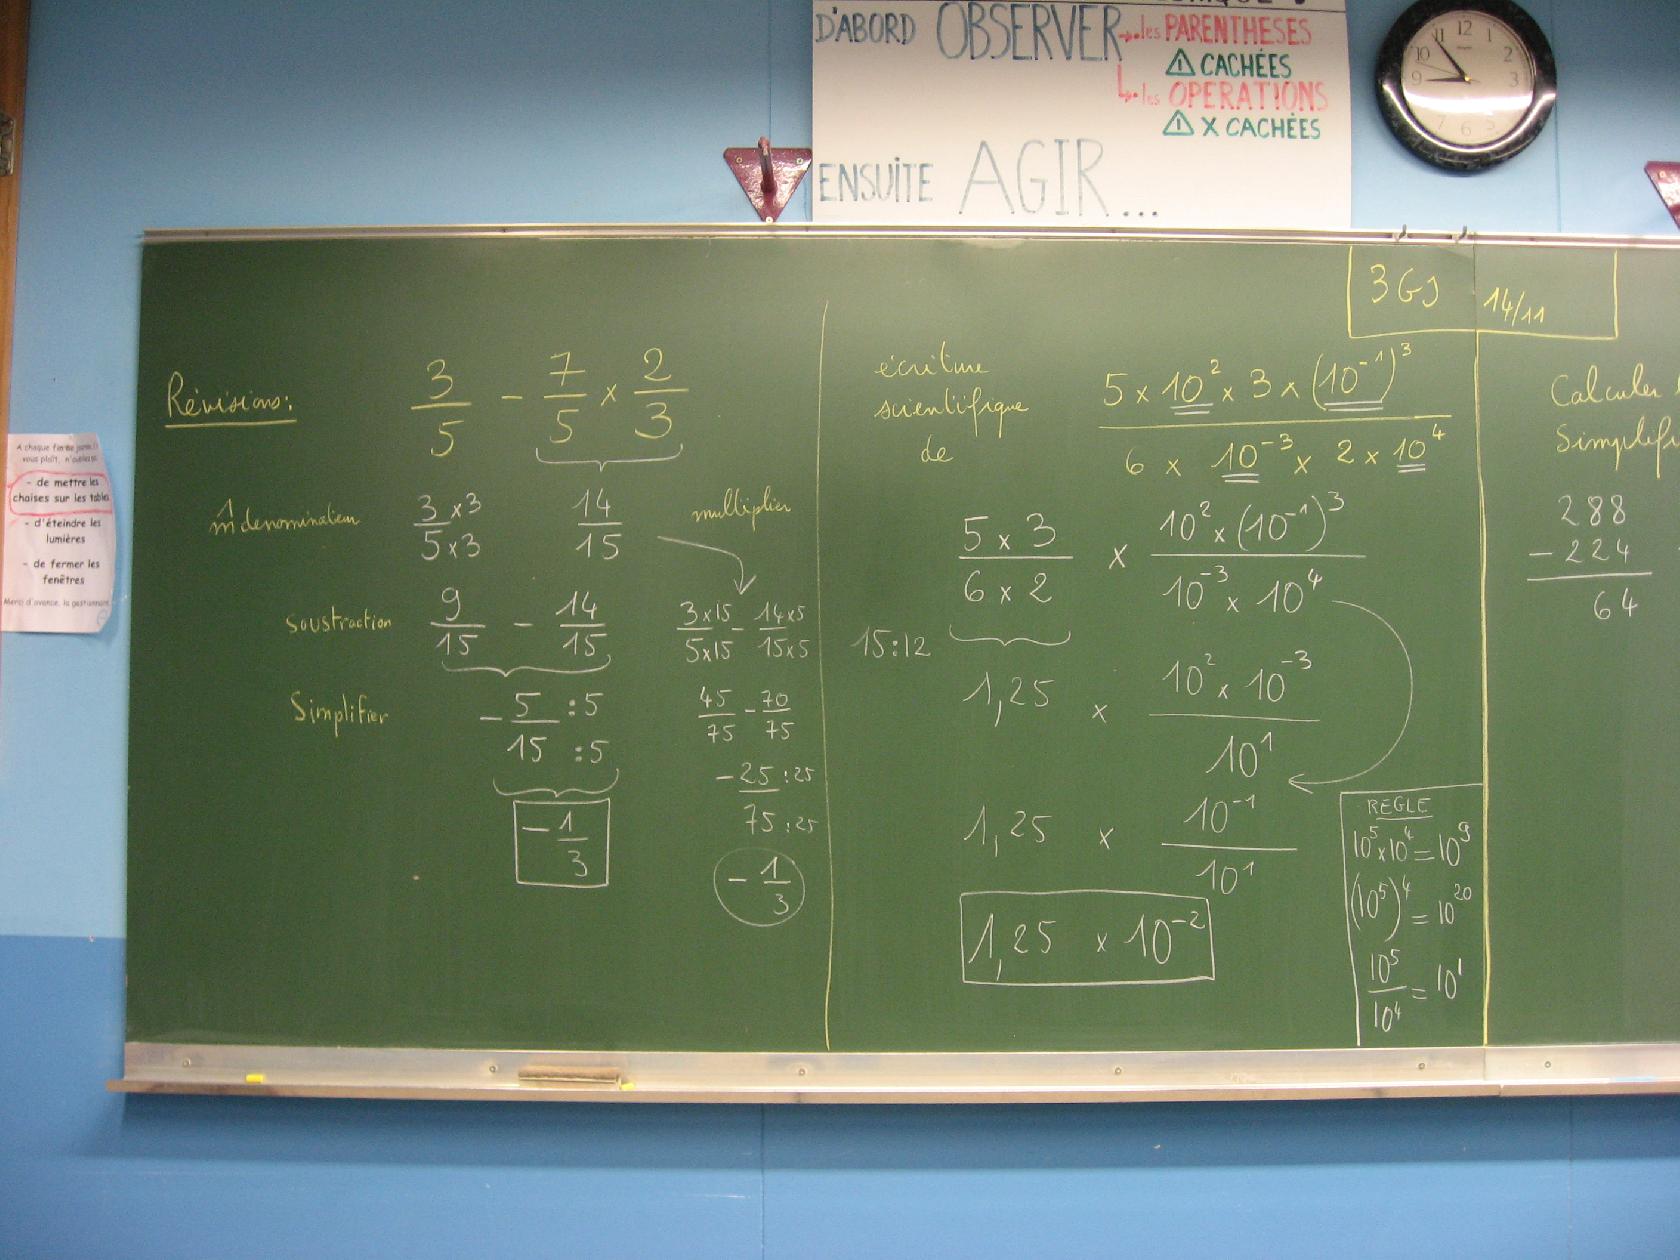 D'ABORD OBSERVER → les PARENTHESES
⚠ CACHÉES
↳ les OPERATIONS
⚠ X CACHÉES
ENSUITE AGIR...
12 1 2 3 5 6 7 9 10 11
A chaque fin de
vous plaît, n'oubliez
- de mettre les
chaises sur les tables
- d'éteindre les
lumières
- de fermer les
fenêtres
Merci d'avance, la gestionnaire
3 G 14/11
Révisions: 3/5 - 7/5 × 2/3
m̂ denominateur 3×3/5×3 14/15 multiplier
soustraction 9/15 - 14/15
Simplifier -5:5/15:5
-1/3
3×15/5×15 - 14×5/15×5
45/75 - 70/75
-25:25/75:25
-1/3
écriture
scientifique
de
5 × 10² × 3 × (10⁻¹)³ / 6 × 10⁻³ × 2 × 10⁴
5 × 3/6 × 2 × 10² × (10⁻¹)³/10⁻³ × 10⁴
15:12
1,25 × 10² × 10⁻³/10¹
1,25 × 10⁻¹/10¹
1,25 × 10⁻²
REGLE
10⁵×10⁴=10⁹
(10⁵)⁴=10²⁰
10⁵/10⁴=10¹
Calculer
Simplifi
288
- 224
64